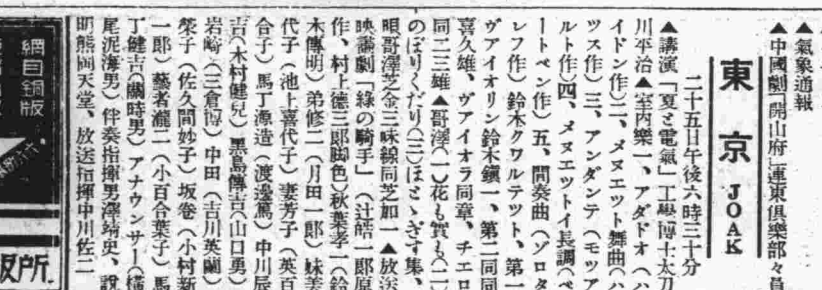 ▲氣象通報
▲中國劇「開山府」連東倶樂部々員
東京 JOAK
二十五日午後六時三十分
▲講演「夏と電氣」工學博士太刀
川平治▲室内樂一、アダドオ（ハ
イドン作）二、メヌエット舞曲（ハ
ツス作）三、アンダンテ（モツア
ルト作）四、メヌエットイ長調（ベ
ートベン作）五、間奏曲（ゾロタ
レフ作）鈴木クワルテツト、第一
ヴアイオリン鈴木鎭一、第二同同
喜久雄、ヴアイオラ同章、チエロ
同二三雄▲哥澤（一）花も實も（二）
のぼりくだり（三）ほとゝぎす集、
唄哥澤芝金三味線同芝加一▲放送
映畵劇「綠の騎手」（辻皓一郎原
作、村上德三郎脚色）秋葉孝一（鈴
木傳明）弟修二（月田一郎）妹美
代子（池上喜代子）妻芳子（英百
合子）馬丁源造（渡邊篤）中川辰
吉（木村健兒）黑島傳吉（山口勇）
岩崎（三倉博）中田（吉川英蘭）
榮子（佐久間妙子）坂卷（小村新
一郎）藝者瀧二（小百合葉子）馬
丁健吉（關時男）アナウンサー（橫
尾泥海男）伴奏指揮男澤靖史、說
明熊岡天堂、放送指揮中川佐二
網目銅版